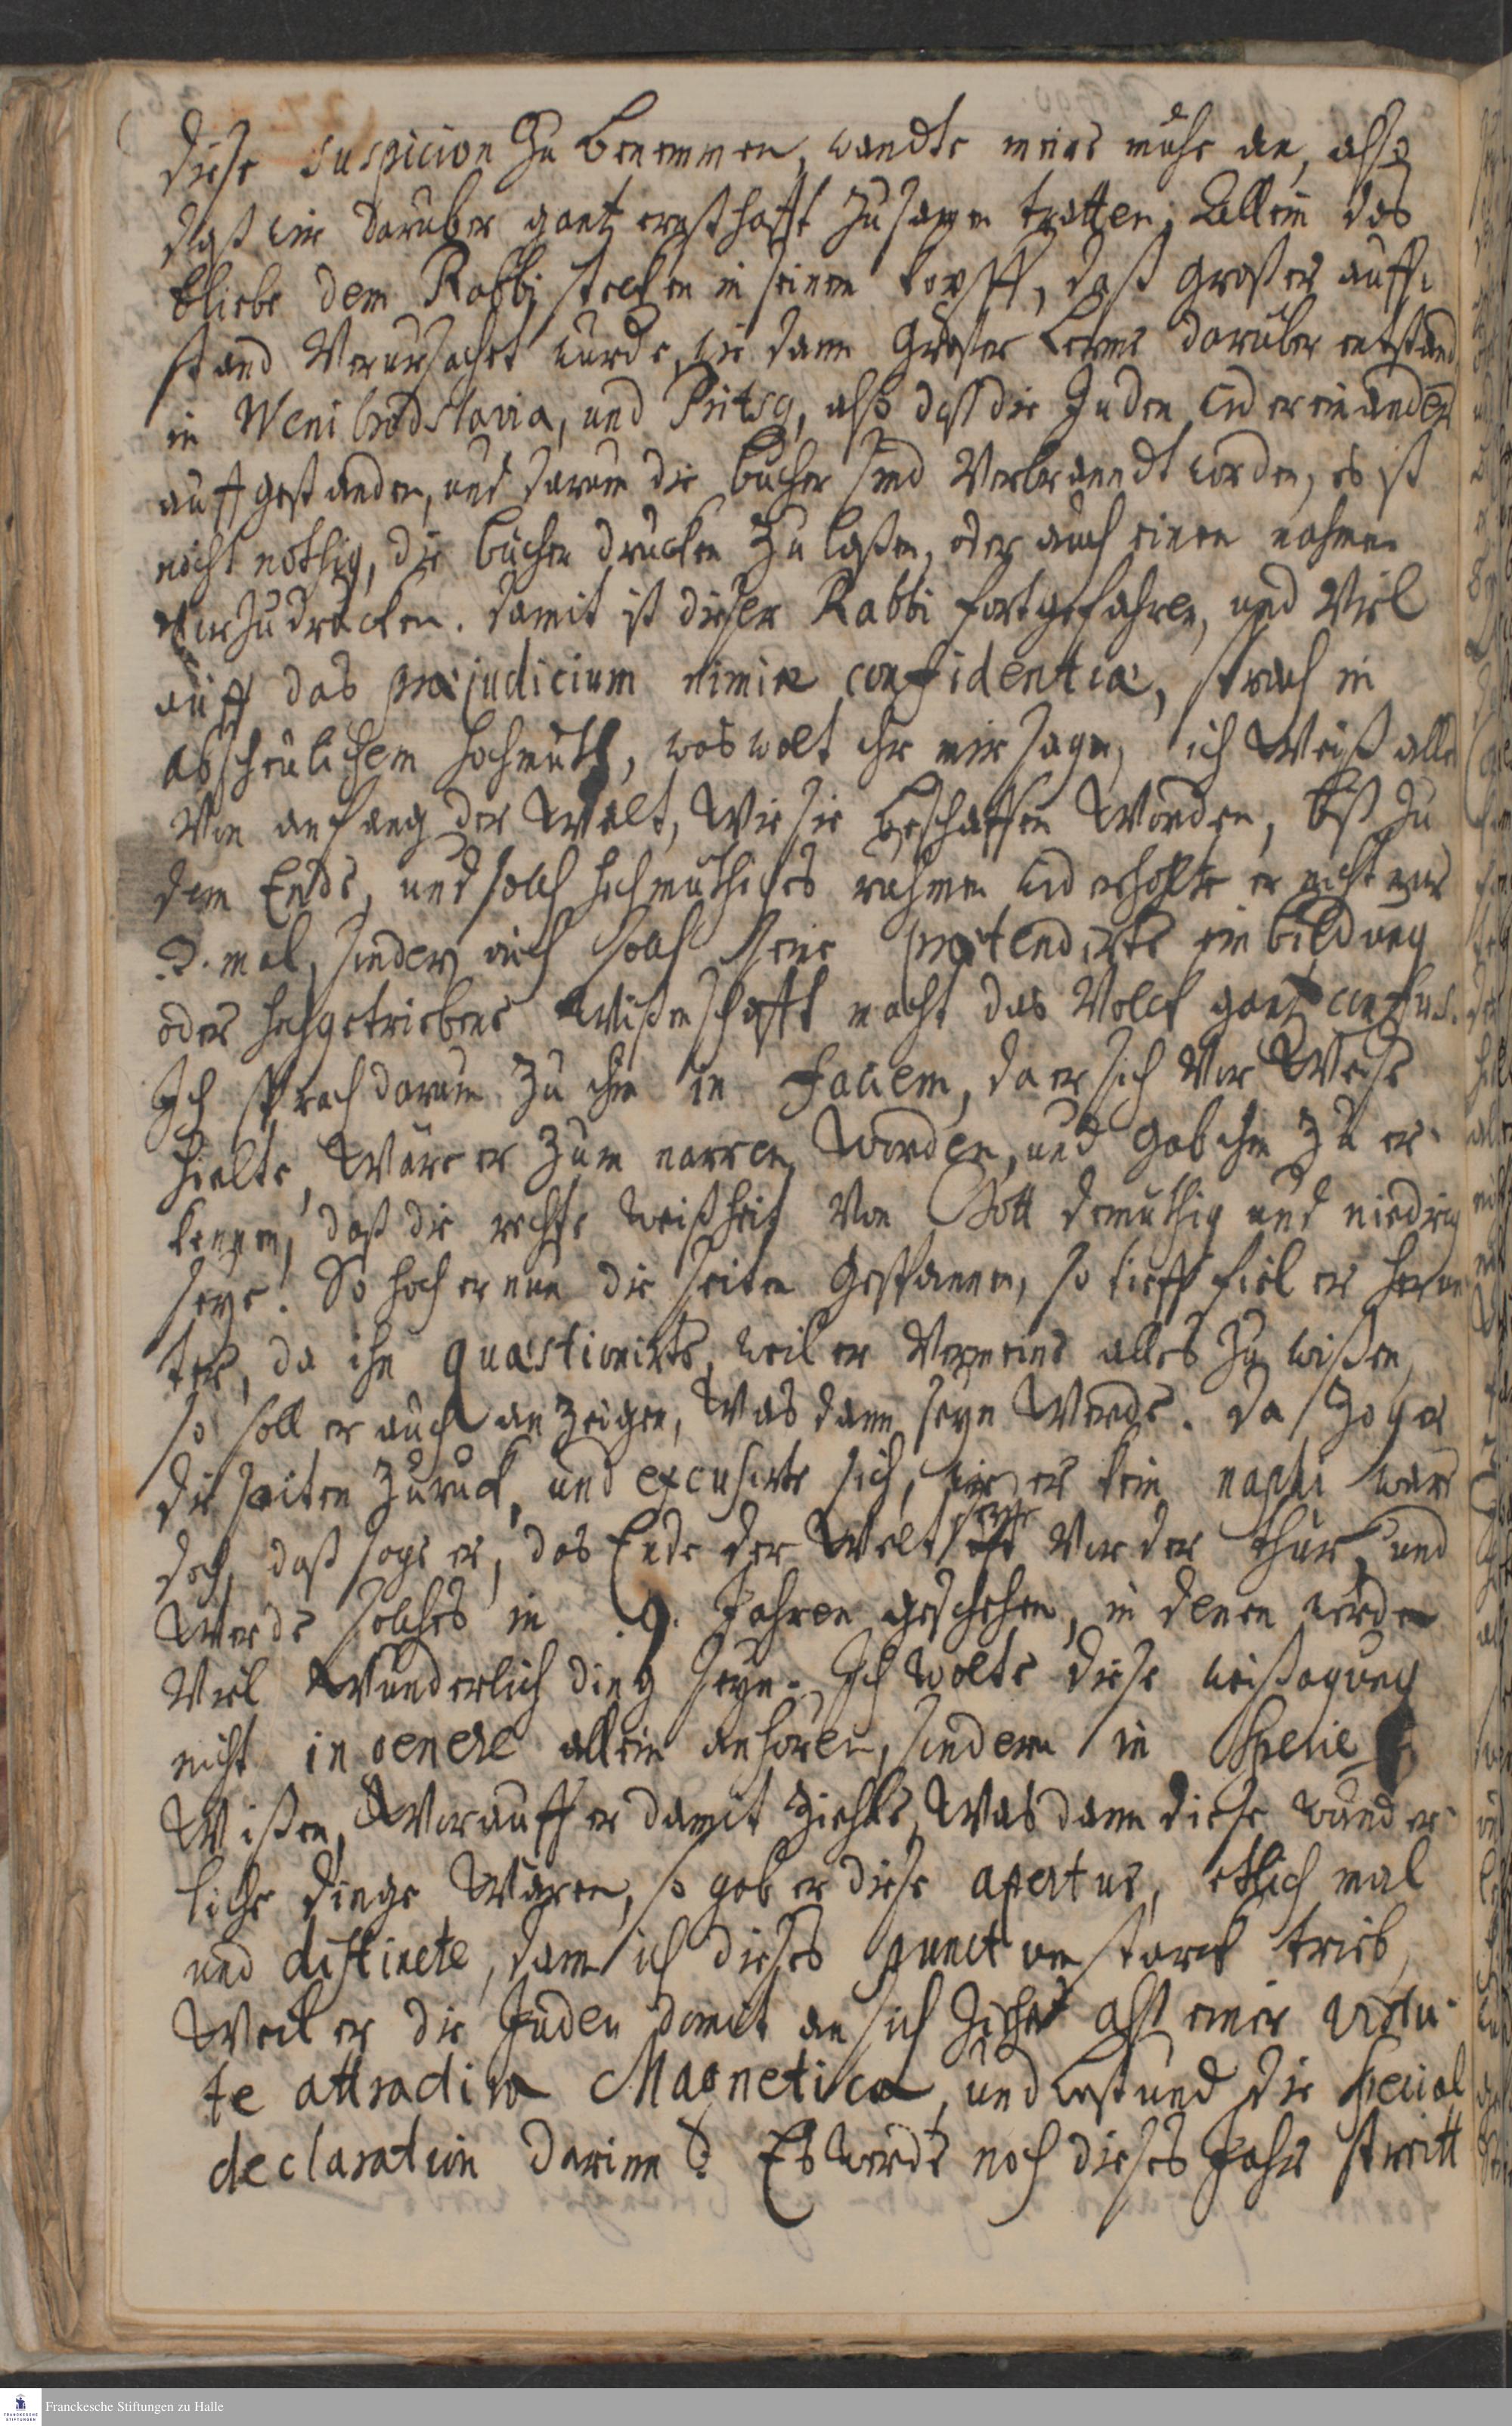 diese suspicion zu benemmen, wandte meine mühe an, also
daß wir darüber gantz ernsthafft zusamen tratten; Allein das
bliebe dem Rabbi stecken in seinem kopff, daß großer auff-
stand Verursachet würde, wie dann großer Lerme darüber entstand
in und also daß die Juden widereinander
auffgestanden, und darum die bücher sind Verbrandt worden, es ist
nicht nöthig, die bücher drucken zu laßen, oder auch einen nahmen
vorzudrucken. damit ist dieser Rabbi fortgefahren, und Viel
auff das præjudicium nimiæ confidentiæ, sprach in
abscheülichem hochmuth, was wolt ihr mir sagen, ich Weiß alles
Von anfang der Welt, Wie sie beschaffen Worden, biß zu
dem Ende, und solch hochmüthiges rühmen widerholte er nicht nur
2. mal, sondern auch solch seine prætendirte einbildung
oder hochgetriebene Wißenschafft macht das Volck gantz confus.
Ich sprach darum zu ihm in faciem, da er sich Vor Weise
hielte, Wäre er zum narren Worden, und gab ihm zu er-
kennen, daß die rechte weißheit Von Gott demüthig und niedrig
seye. So hoch er nun die seiten gespannen, so tieff fiel er herun-
ter, da ihn quæstionirte, weil er Vermeine alles zu wißen,
so soll er auch anzeigen, Was dann seyn Werde. da zog er
die saiten zurück, und excusirte sich, wie er kein naphi wäre
doch, daß sage er, das Ende der Welt seye Vor der thür, und
Werde solches in 9. Jahren geschehen, in denen werden
Viel Wunderlich ding seyn. Ich wolte diese weißagung
nicht in genere allein anhören, sondern in specie
Wißen, Worauff er damit ziehle, Was dann diese wunder-
liche dinge Wären, so gab er diese apertur, etlich mal
und distincte, dann ich dieses punctum starck trieb,
Weil er die Juden damit an sich ziehet alß einer virtu-
te attractiva Magnetica, und bestund die special
declaration darinn: Es werde noch dieses Jahr streitt
Franckesche Stiftungen zu Halle